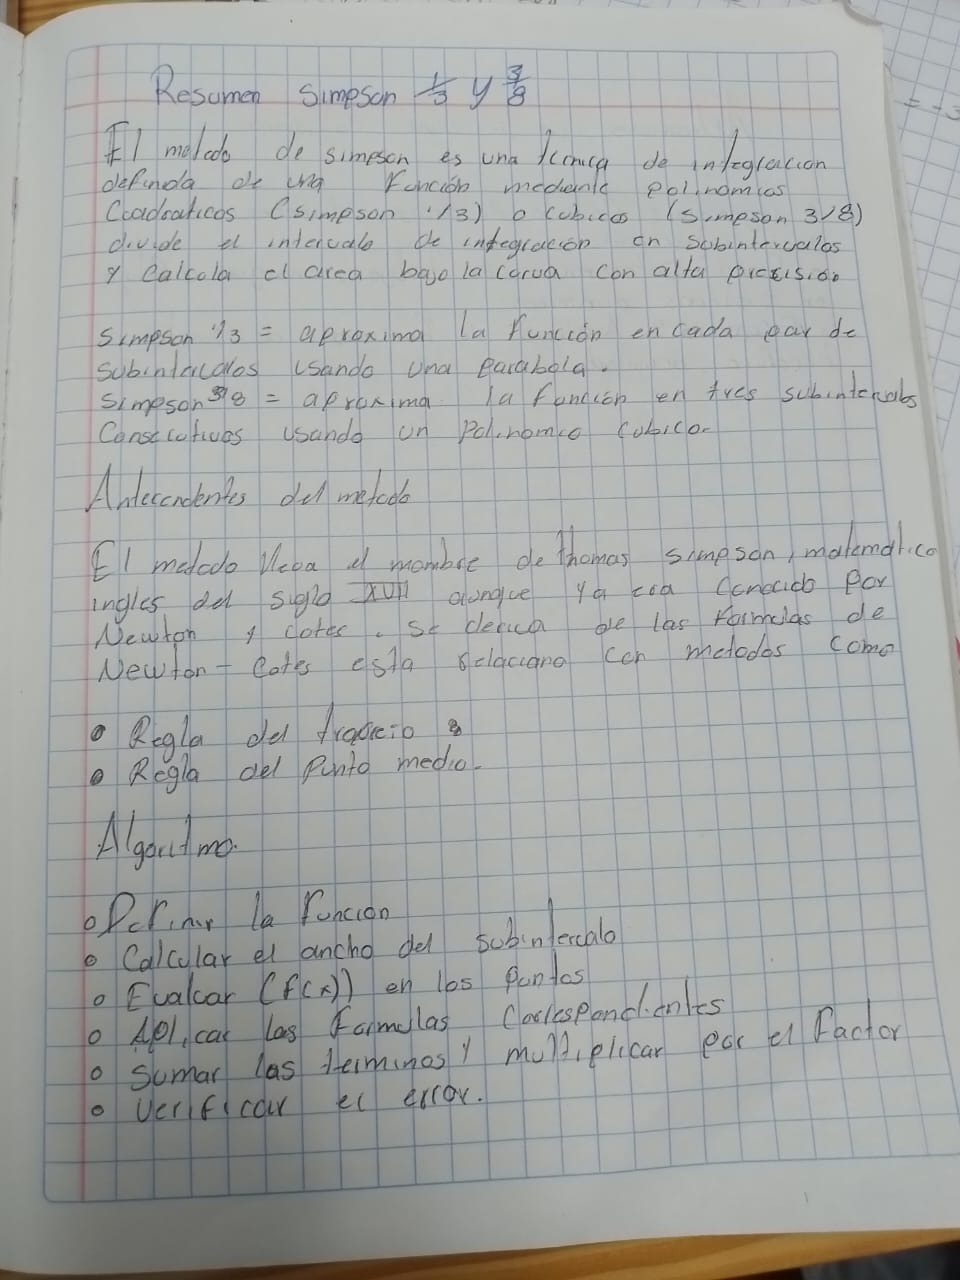 Resumen Simpson 1/3 y 3/8
El metodo de simpson es una tecnica de integracion
definida de una Función mediante polinomios
Cuadraticos (simpson 1/3) o cubicos (simpson 3/8)
divide el intervalo de integración en subintervalos
y Calcula el area bajo la curva con alta precisión
Simpson 1/3 = aproxima la Función en cada par de
subintervalos usando una parabola.
Simpson 3/8 = aproxima la función en tres subintervalos
Consecutivos usando un Polinomio cubico.
Antecendentes del metodo
El metodo lleva el nombre de thomas simpson, matematico
ingles del siglo XVIII aunque ya era conocido por
Newton y cotes. Se deriva de las formulas de
Newton - Cotes esta relaciano con metodos como
• Regla del trapecio
• Regla del Punto medio.
Algoritmo.
• Definir la Funcion
• Calcular el ancho del subintervalo
• Evaluar (f(x)) en los puntos
• Aplicar las Formulas Correspondientes
• Sumar los terminos y multiplicar por el Factor
• Verificar el error.
= -3